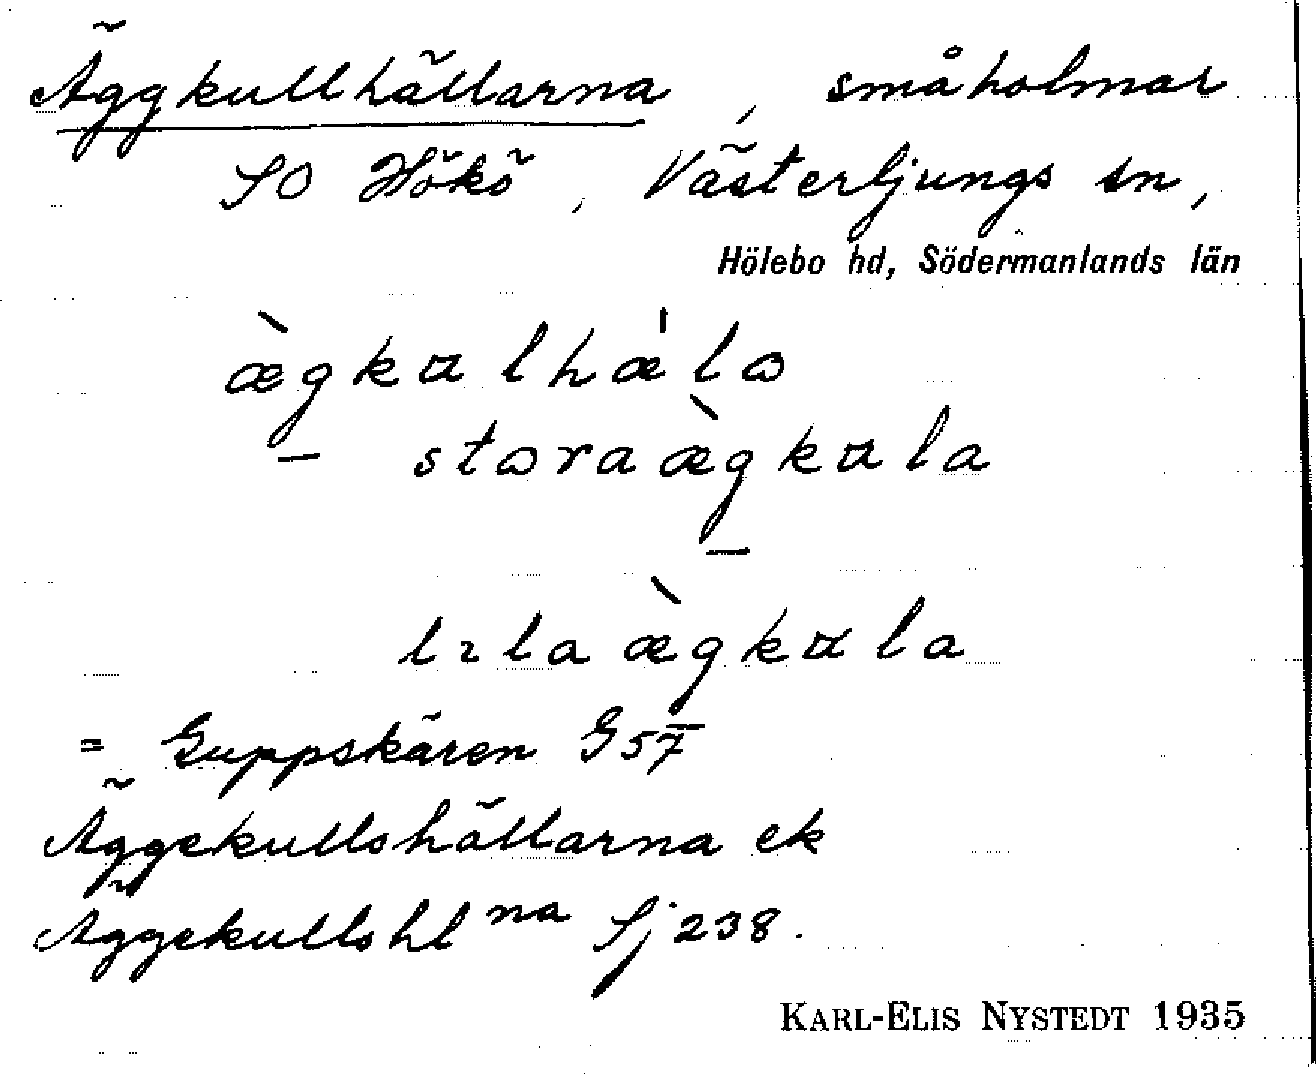 Äggkullhällarna, småholmar
SO Hökö, Västerljungs sn,
Hölebo hd, Södermanlands län
æ̀gkɷlhæ̍lɷ
– stɷraæ̀gkɷla
–
lılaæ̀gkɷla
= Guppskären G57
Äggekullshällarna ek
Äggekullshl na Sj 238.
KARL-ELIS NYSTEDT 1935